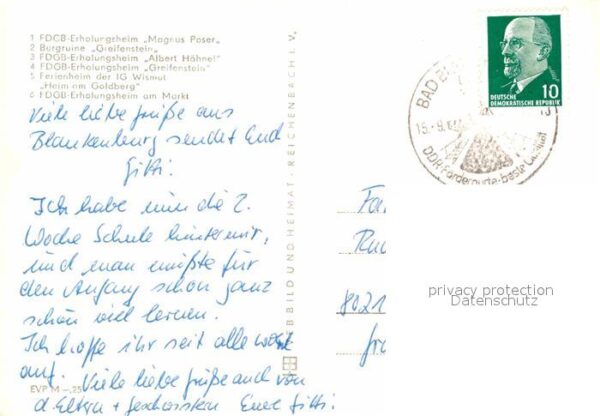 1 FDGB-Erholungsheim „Magnus Poser"
2 Burgruine „Greifenstein"
3 FDGB-Erholungsheim „Albert Hähnel"
4 FDGB-Erholungsheim „Greifenstein"
5 Ferienheim der IG Wismut
„Haim am Goldberg"
6 FDGB-Erholungsheim am Markt
Viele liebe Grüße aus
Blankenburg sendet Euch
Gitti.
Ich habe nun die 2.
Woche Schule hinter mir,
und man mußte für
den Anfang schon ganz
schön viel lernen.
Ich hoffe ihr seit alle
auf. Viele liebe Grüße auch von
d. Eltern + Geschwistern Eure Gitti.
EVP M –,25
BILD UND HEIMAT · REICHENBACH i. V.
BAD
15.-9.
DDR
10
DEUTSCHE
DEMOKRATISCHE REPUBLIK
8021
privacy protection
Datenschutz